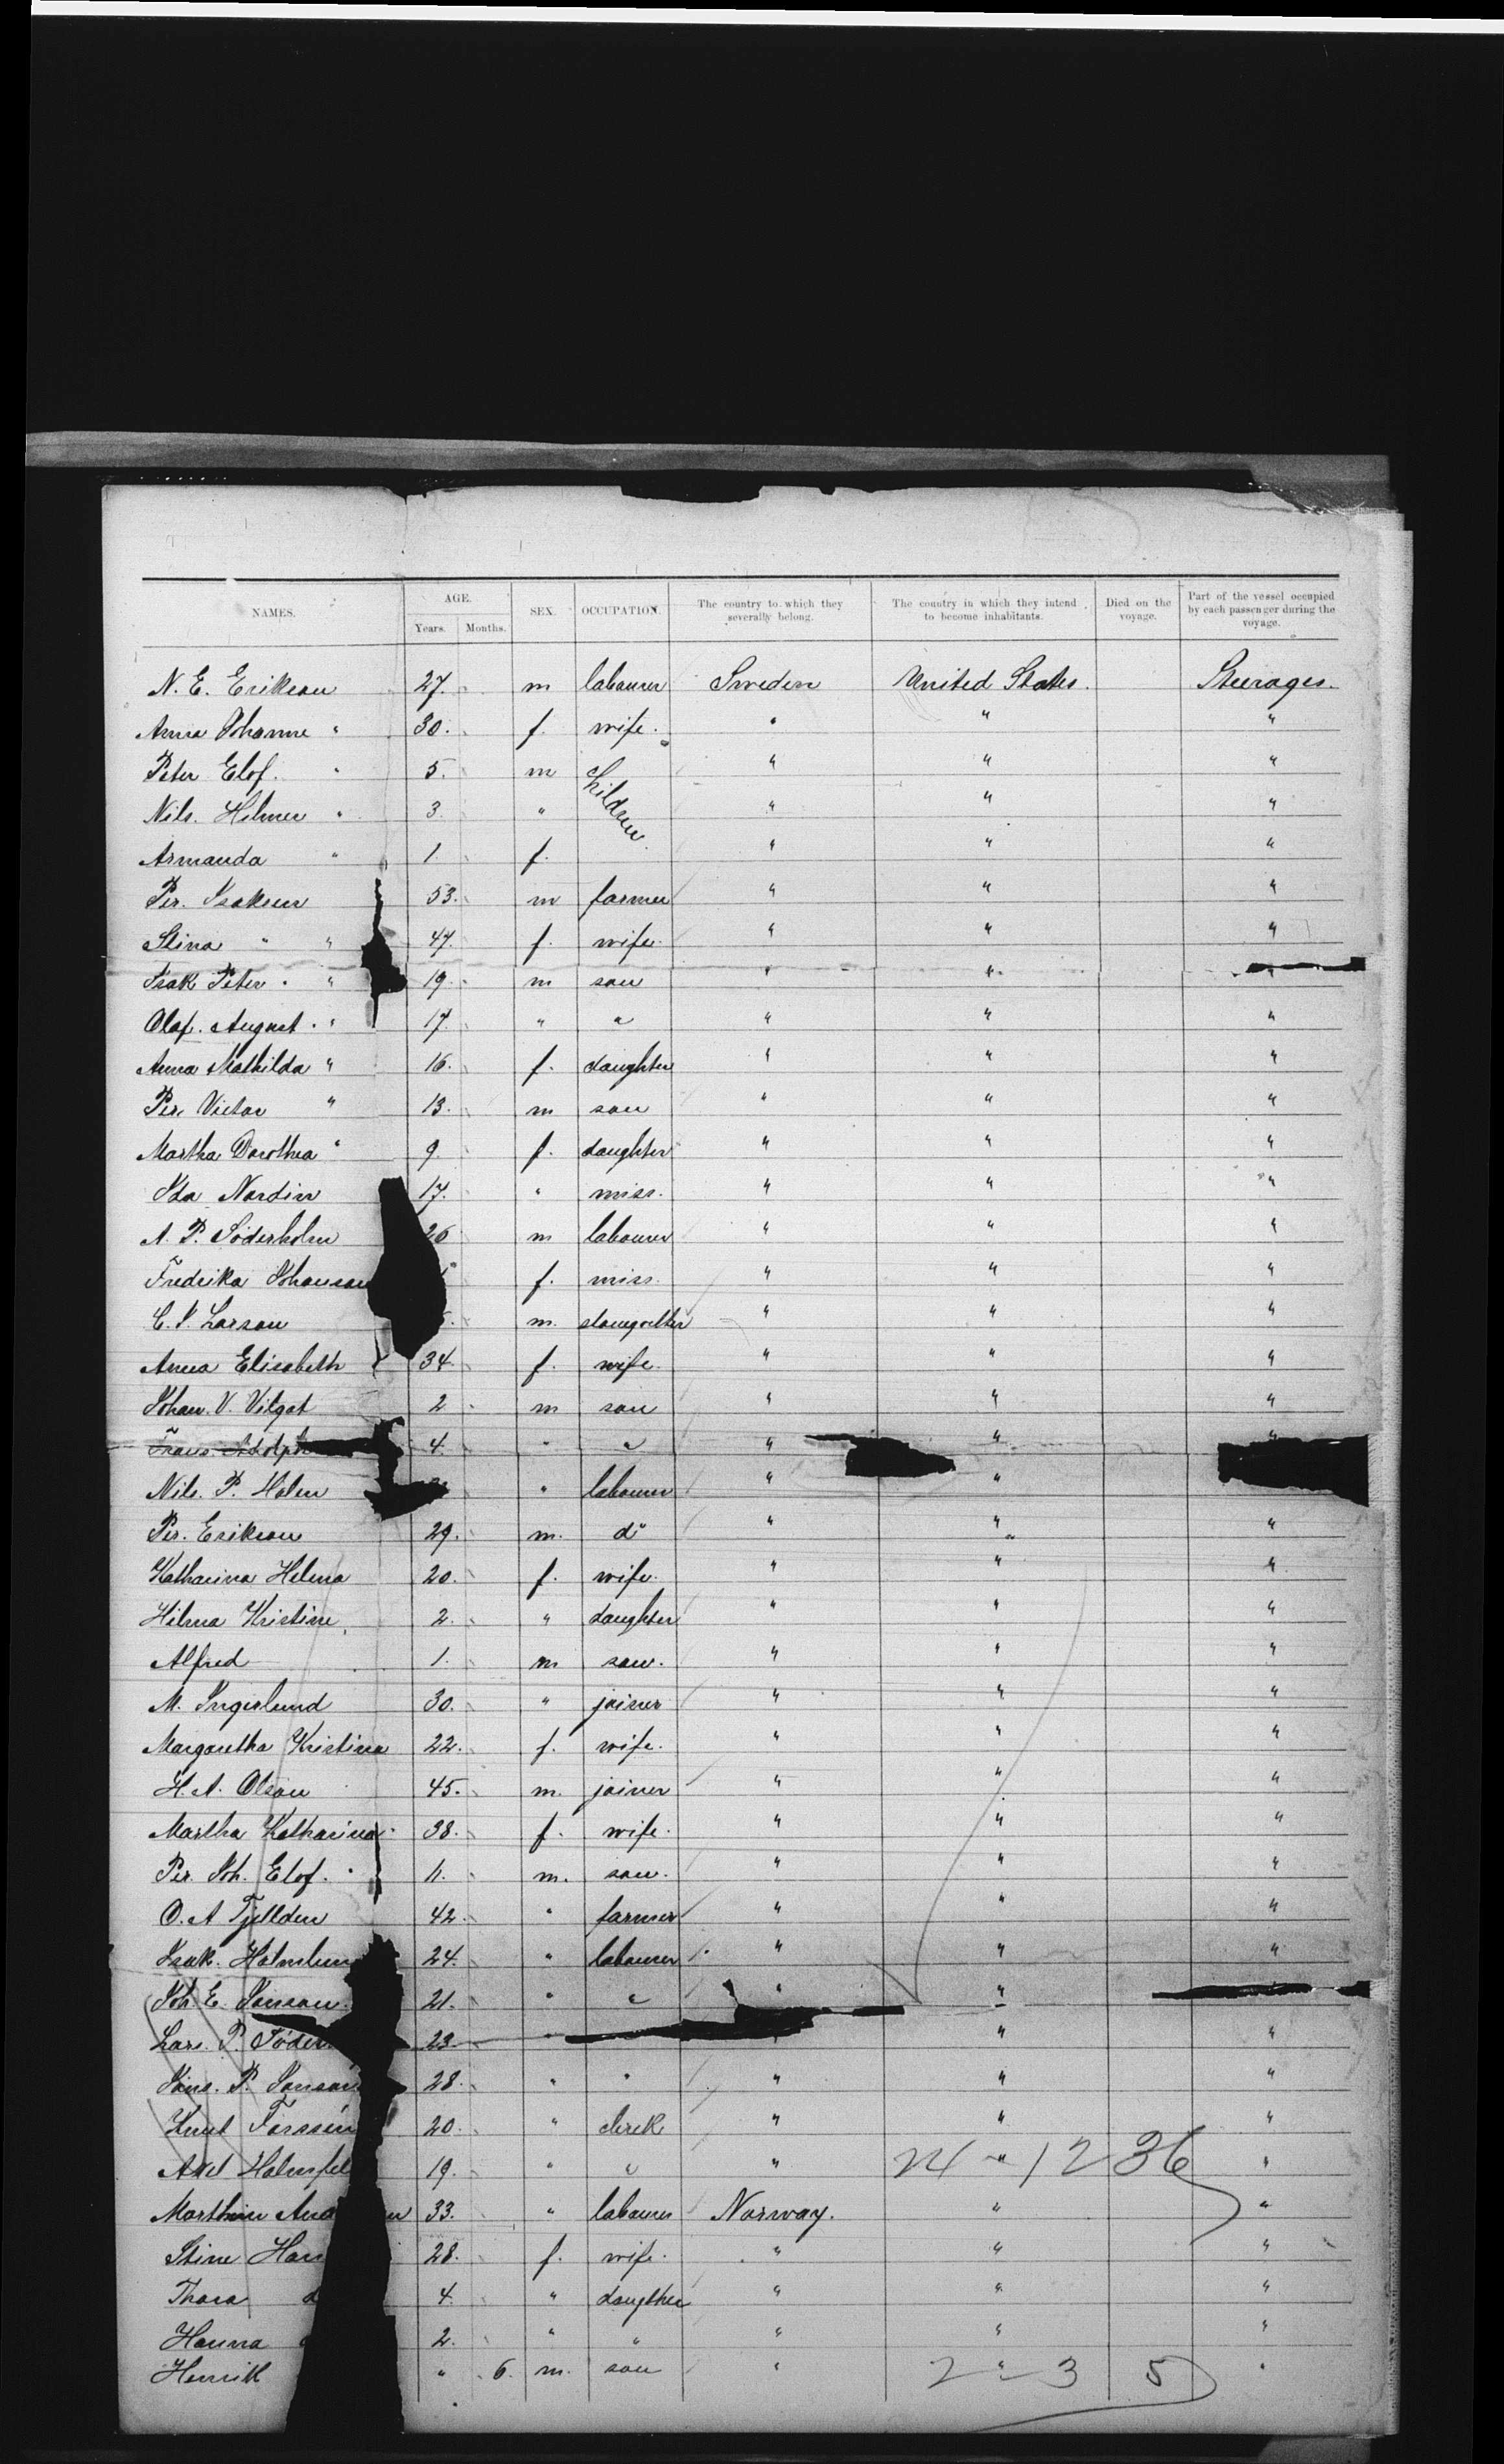 NAMES. AGE. SEX. OCCUPATION. The country to which they severally belong. The country in which they intend to become inhabitants. Died on the voyage. Part of the vessel occupied by each passenger during the voyage.
Years. Months.
N. E. Erikson 27. m labourer Sweden United States. Steerages.
Anna Johanne " 30. f. wife. " " "
Peter Elof. " 5. m Children " " "
Nils. Hilmer " 3 " " " "
Armanda " 1. f. " " "
Per. Isakson 53. m farmer " " "
Stina " " 47. f. wife. " " "
Isak Peter. " 19. m son " " "
Olof. August. " 17. " " " " "
Anna Mathilda " 16. f. daughter " " "
Per. Victor " 13. m son " " "
Martha Dorothea " 9. f. daughter " " "
Ida Nordin 17. " miss. " " "
A. P. Söderholm 26 m labourer " " "
Fredrika Johanson f. miss. " " "
C. J. Larson m. " " "
Anna Elisabeth 34. f. wife. " " "
Johan. V. 2 m son " " "
Frans Adolph 4. " " " " "
Nils. P. Holm " labourer " " "
Per. Erikson 29. m. do " " "
Katharina Helena 20. f. wife. " " "
Hilma Kristine 2. " daughter " " "
Alfred 1. m son. " " "
M. Ingerlund 30. " joiner " " "
Margaretha Kristina 22. f. wife. " " "
H. A. Olson 45. m. joiner " " "
Martha Katharina 38. f. wife. " " "
Per. Joh. Elof. " 11. m. son. " " "
O. A Tjellden 42. " farmer " " "
Isak. Holmlun 24. " labourer " " "
Joh. E. Jonson. 21. " " " " "
Lars. P. Söder 23 " " " "
Jöns. P. Jonson 28. " " " " "
Knut Forssén 20. " clerk " " "
Axel Holmfel 19. " " " 24 " 12 36 "
Marthin And n 33. " labourer Norway. " "
Stine Han 28. f. wife. " " "
Thora d 4. " daugther " " "
Hanna d 2. " " " " "
Henrik " 6. m. son " 2 " 3 5 "